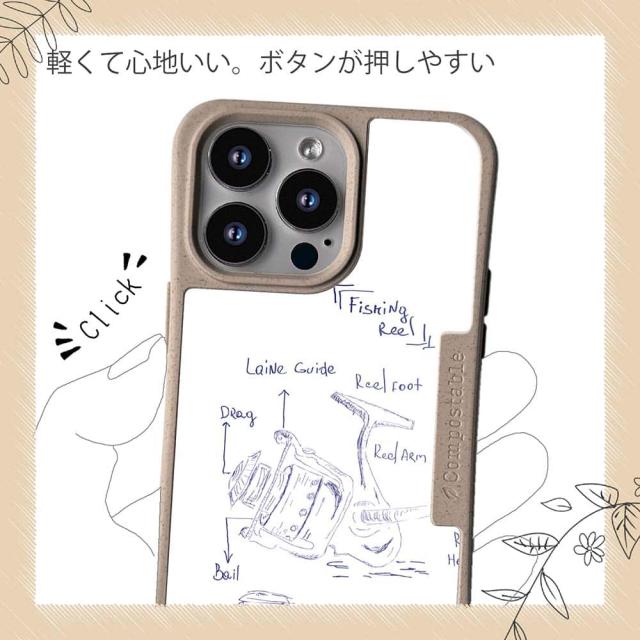 軽くて心地いい。ボタンが押しやすい
Click
Fishing
Reel
Laine Guide
Reel Foot
Drag
Reel Arm
Compostable
Bail